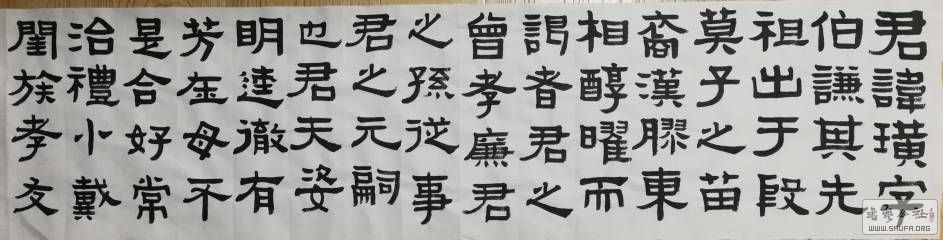 君諱璜字
伯謙其先
祖出于段
莫子之苗
裔漢膠東
相醇曜而
謁者君之
曾孝廉君
之孫從事
君之元嗣
也君天姿
明逹徹有
芳母不
是合好常
治禮小戴
閨族孝友
WWW.SHUFA.ORG